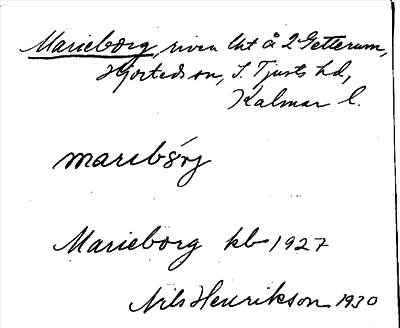 Marieborg, riven lht å 2 Getterum,
Hjorteds sn, S. Tjusts hd,
Kalmar l.
marebörj
Marieborg kb 1927
Nils Henrikson 1930